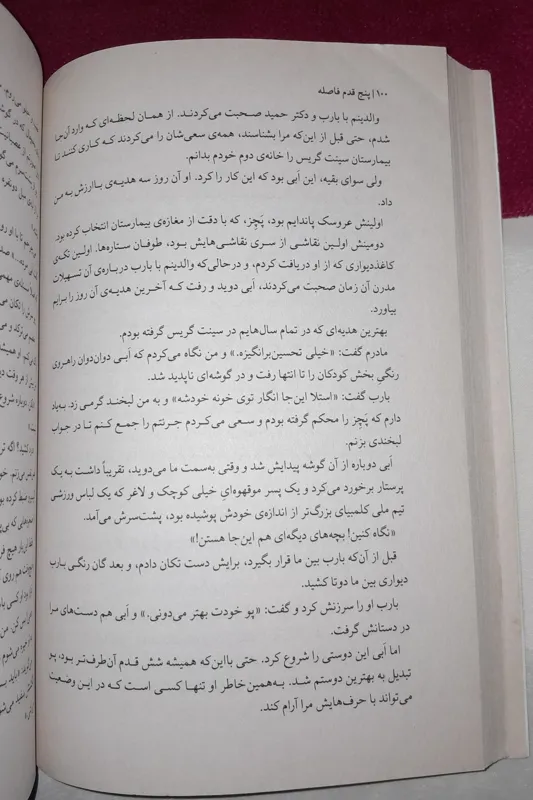 ۱۰۰ | پنج قدم فاصله
والدینم با بارب و دکتر حمید صحبت می‌کردند. از همان لحظه‌ای که وارد آن‌جا
شدم، حتی قبل از این‌که مرا بشناسند، همه‌ی سعی‌شان را می‌کردند که کاری کنند تا
بیمارستان سینت گریس را خانه‌ی دوم خودم بدانم.
ولی سوای بقیه، این اَبی بود که این کار را کرد. او آن روز سه هدیه‌ی باارزش به من
داد.
اولینش عروسک پاندایم بود، پَچز، که با دقت از مغازه‌ی بیمارستان انتخاب کرده بود.
دومینش اولین نقاشی از سری نقاشی‌هایش بود، طوفان ستاره‌ها. اولین تکه‌ی
کاغذدیواری که از او دریافت کردم، و درحالی‌که والدینم با بارب درباره‌ی آن تسهیلات
مدرن آن زمان صحبت می‌کردند، اَبی دوید و رفت که آخرین هدیه‌ی آن روز را برایم
بیاورد.
بهترین هدیه‌ای که در تمام سال‌هایم در سینت گریس گرفته بودم.
مادرم گفت: «خیلی تحسین‌برانگیزه.» و من نگاه می‌کردم که اَبی دوان‌دوان راهروی
رنگیِ بخش کودکان را تا انتها رفت و در گوشه‌ای ناپدید شد.
بارب گفت: «استلا این‌جا انگار توی خونه خودشه» و به من لبخند گرمی زد. به‌یاد
دارم که پَچز را محکم گرفته بودم و سعی می‌کردم جرئتم را جمع کنم تا در جواب
لبخندی بزنم.
اَبی دوباره از آن گوشه پیدایش شد و وقتی به‌سمت ما می‌دوید، تقریباً داشت به یک
پرستار برخورد می‌کرد و یک پسر موقهوه‌ایِ خیلی کوچک و لاغر که یک لباس ورزشی
تیم ملی کلمبیای بزرگ‌تر از اندازه‌ی خودش پوشیده بود، پشت‌سرش می‌آمد.
«نگاه کنین! بچه‌های دیگه‌ای هم این‌جا هستن!»
قبل از آن‌که بارب بین ما قرار بگیرد، برایش دست تکان دادم، و بعد گان رنگیِ بارب
دیواری بین ما دوتا کشید.
بارب او را سرزنش کرد و گفت: «پو خودت بهتر می‌دونی.» و اَبی هم دست‌های مرا
در دستانش گرفت.
اما اَبی این دوستی را شروع کرد. حتی بااین‌که همیشه شش قدم آن‌طرف‌تر بود، پو
تبدیل به بهترین دوستم شد. به‌همین‌خاطر او تنها کسی است که در این وضعیت
می‌تواند با حرف‌هایش مرا آرام کند.